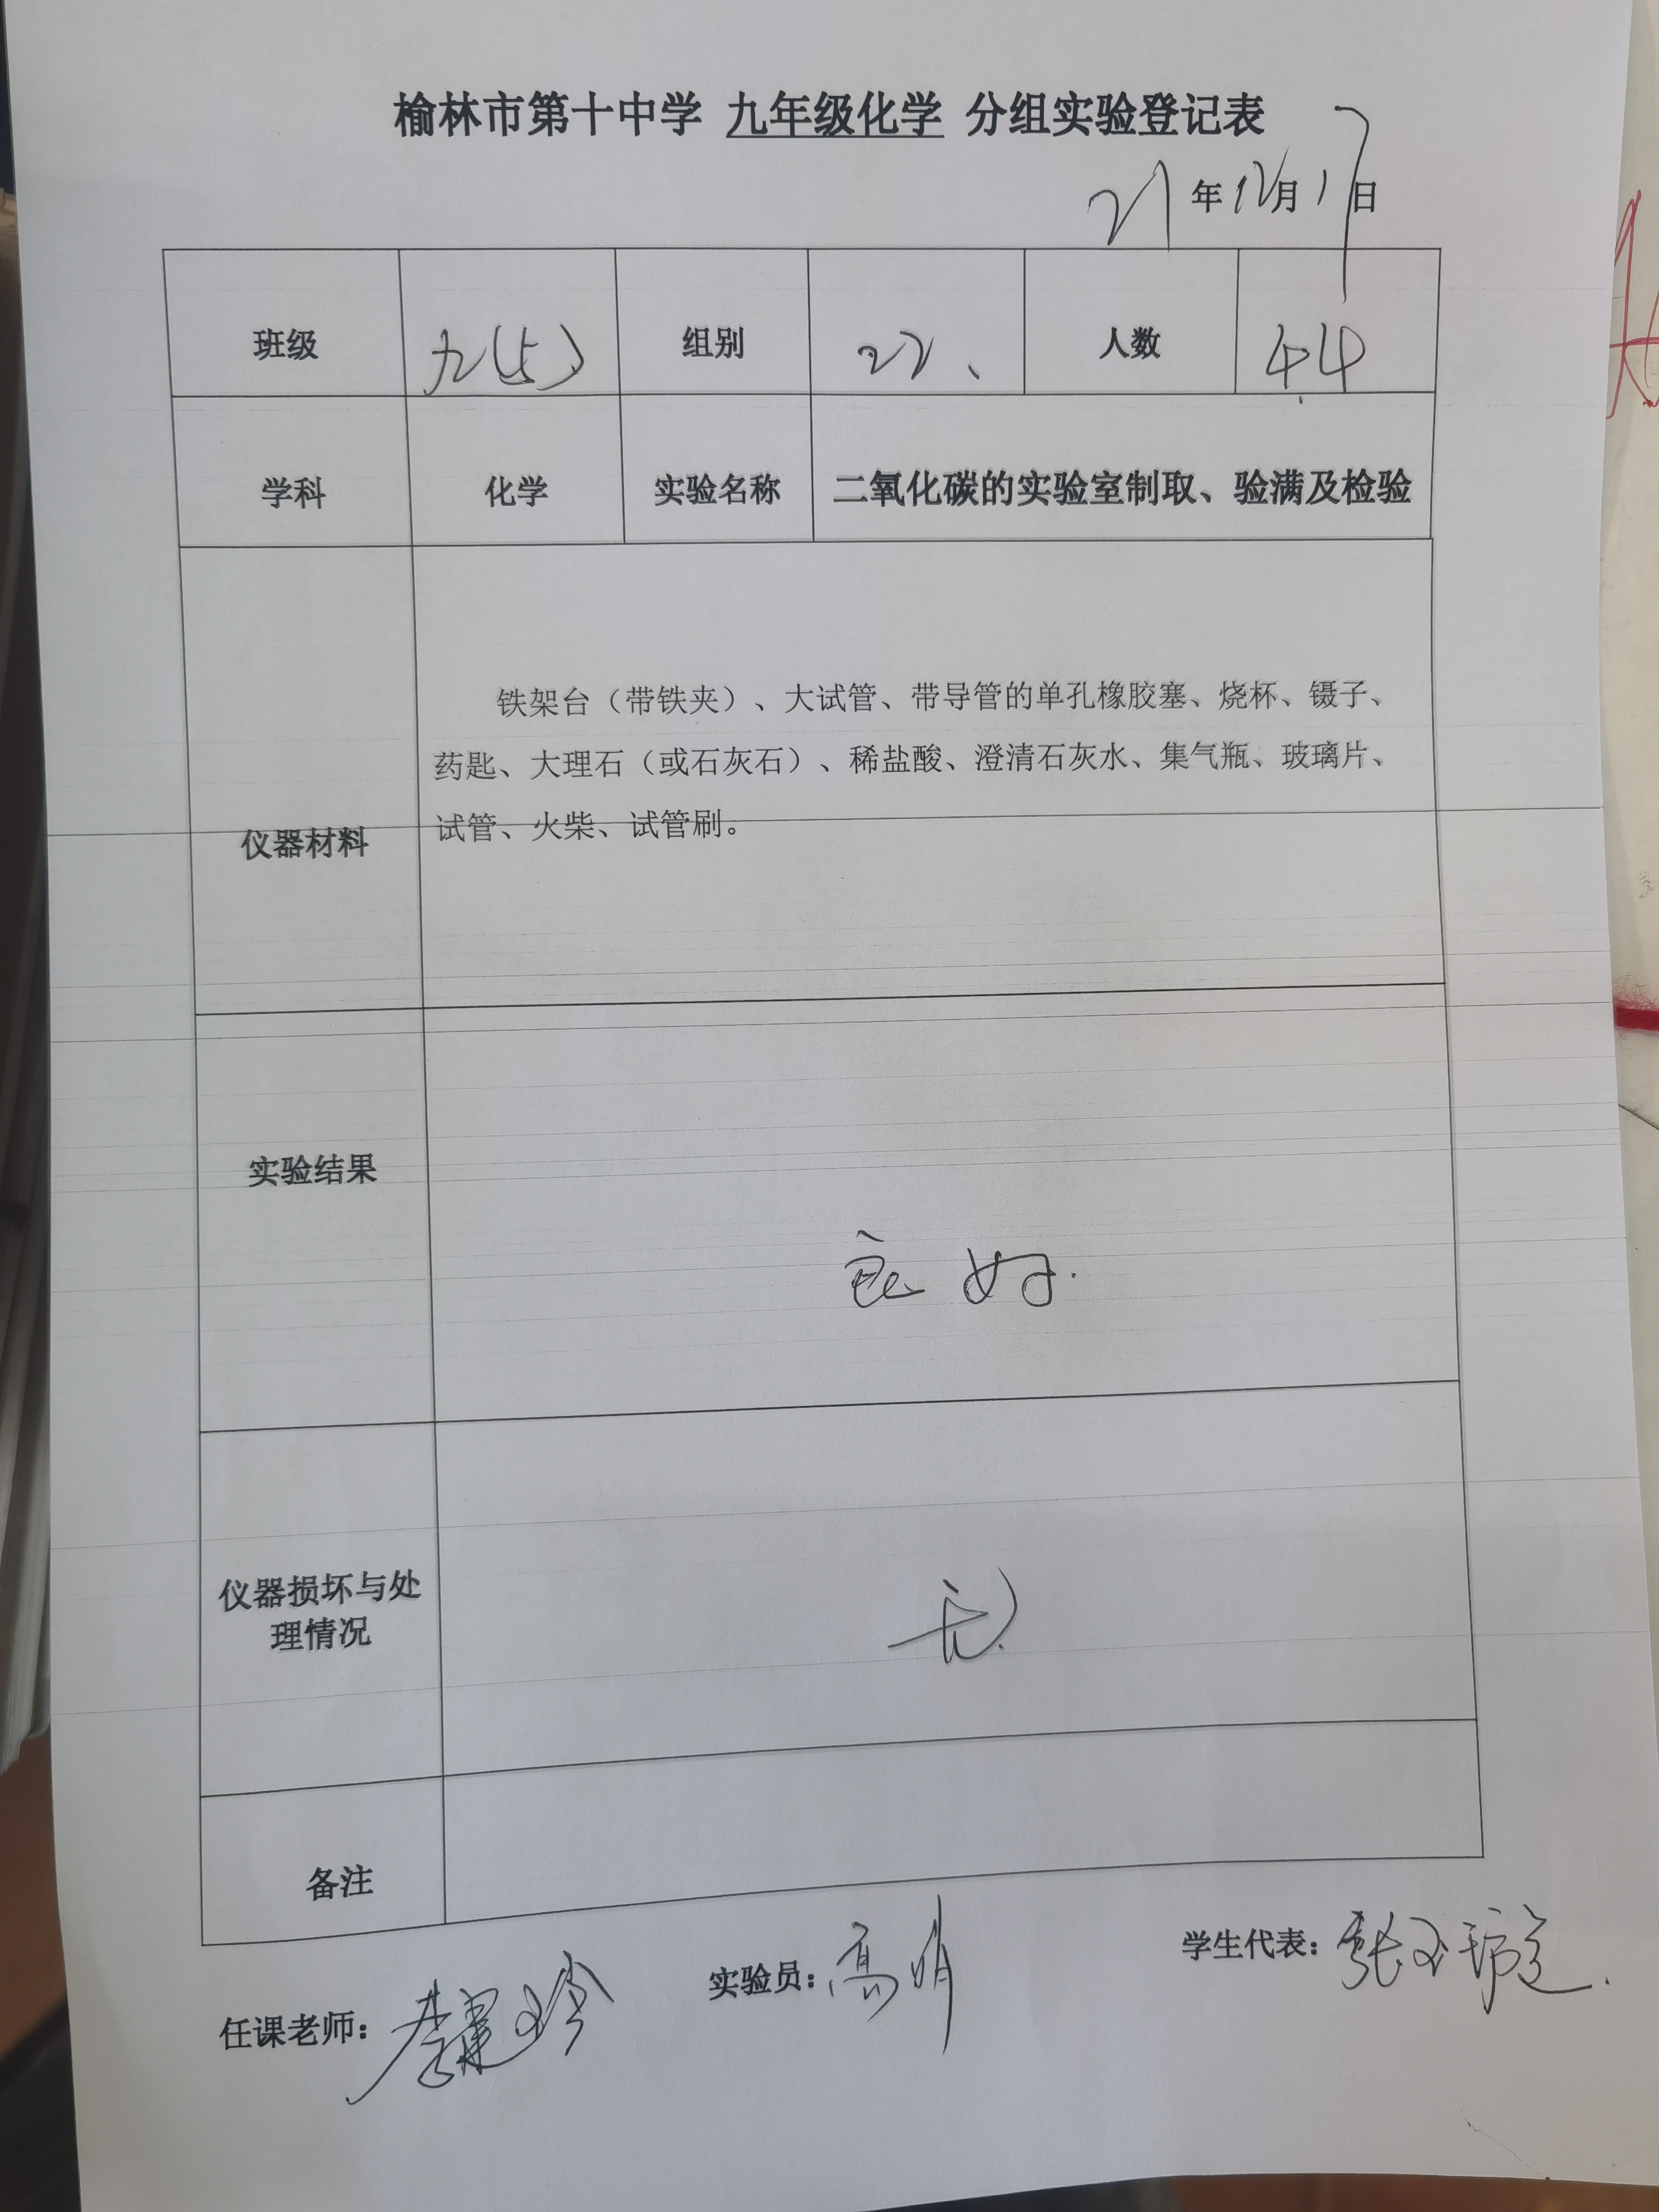 榆林市第十中学 九年级化学 分组实验登记表
21年12月17日
班级 九(5) 组别 22、 人数 44
学科 化学 实验名称 二氧化碳的实验室制取、验满及检验
铁架台（带铁夹）、大试管、带导管的单孔橡胶塞、烧杯、镊子、
药匙、大理石（或石灰石）、稀盐酸、澄清石灰水、集气瓶、玻璃片、
仪器材料 试管、火柴、试管刷。
实验结果
良好.
仪器损坏与处
理情况
无
备注
任课老师：
实验员：高明
学生代表：张